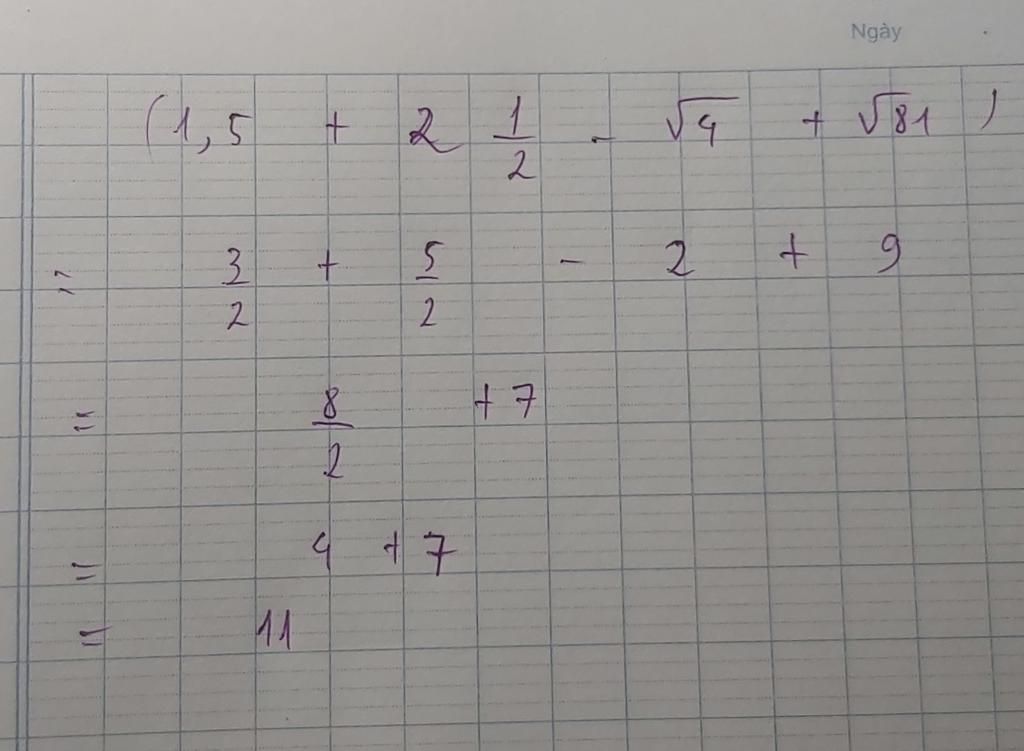 Ngày
(1,5 + 2 1/2 - √4 + √81)
= 3/2 + 5/2 - 2 + 9
= 8/2 + 7
= 4 + 7
= 11